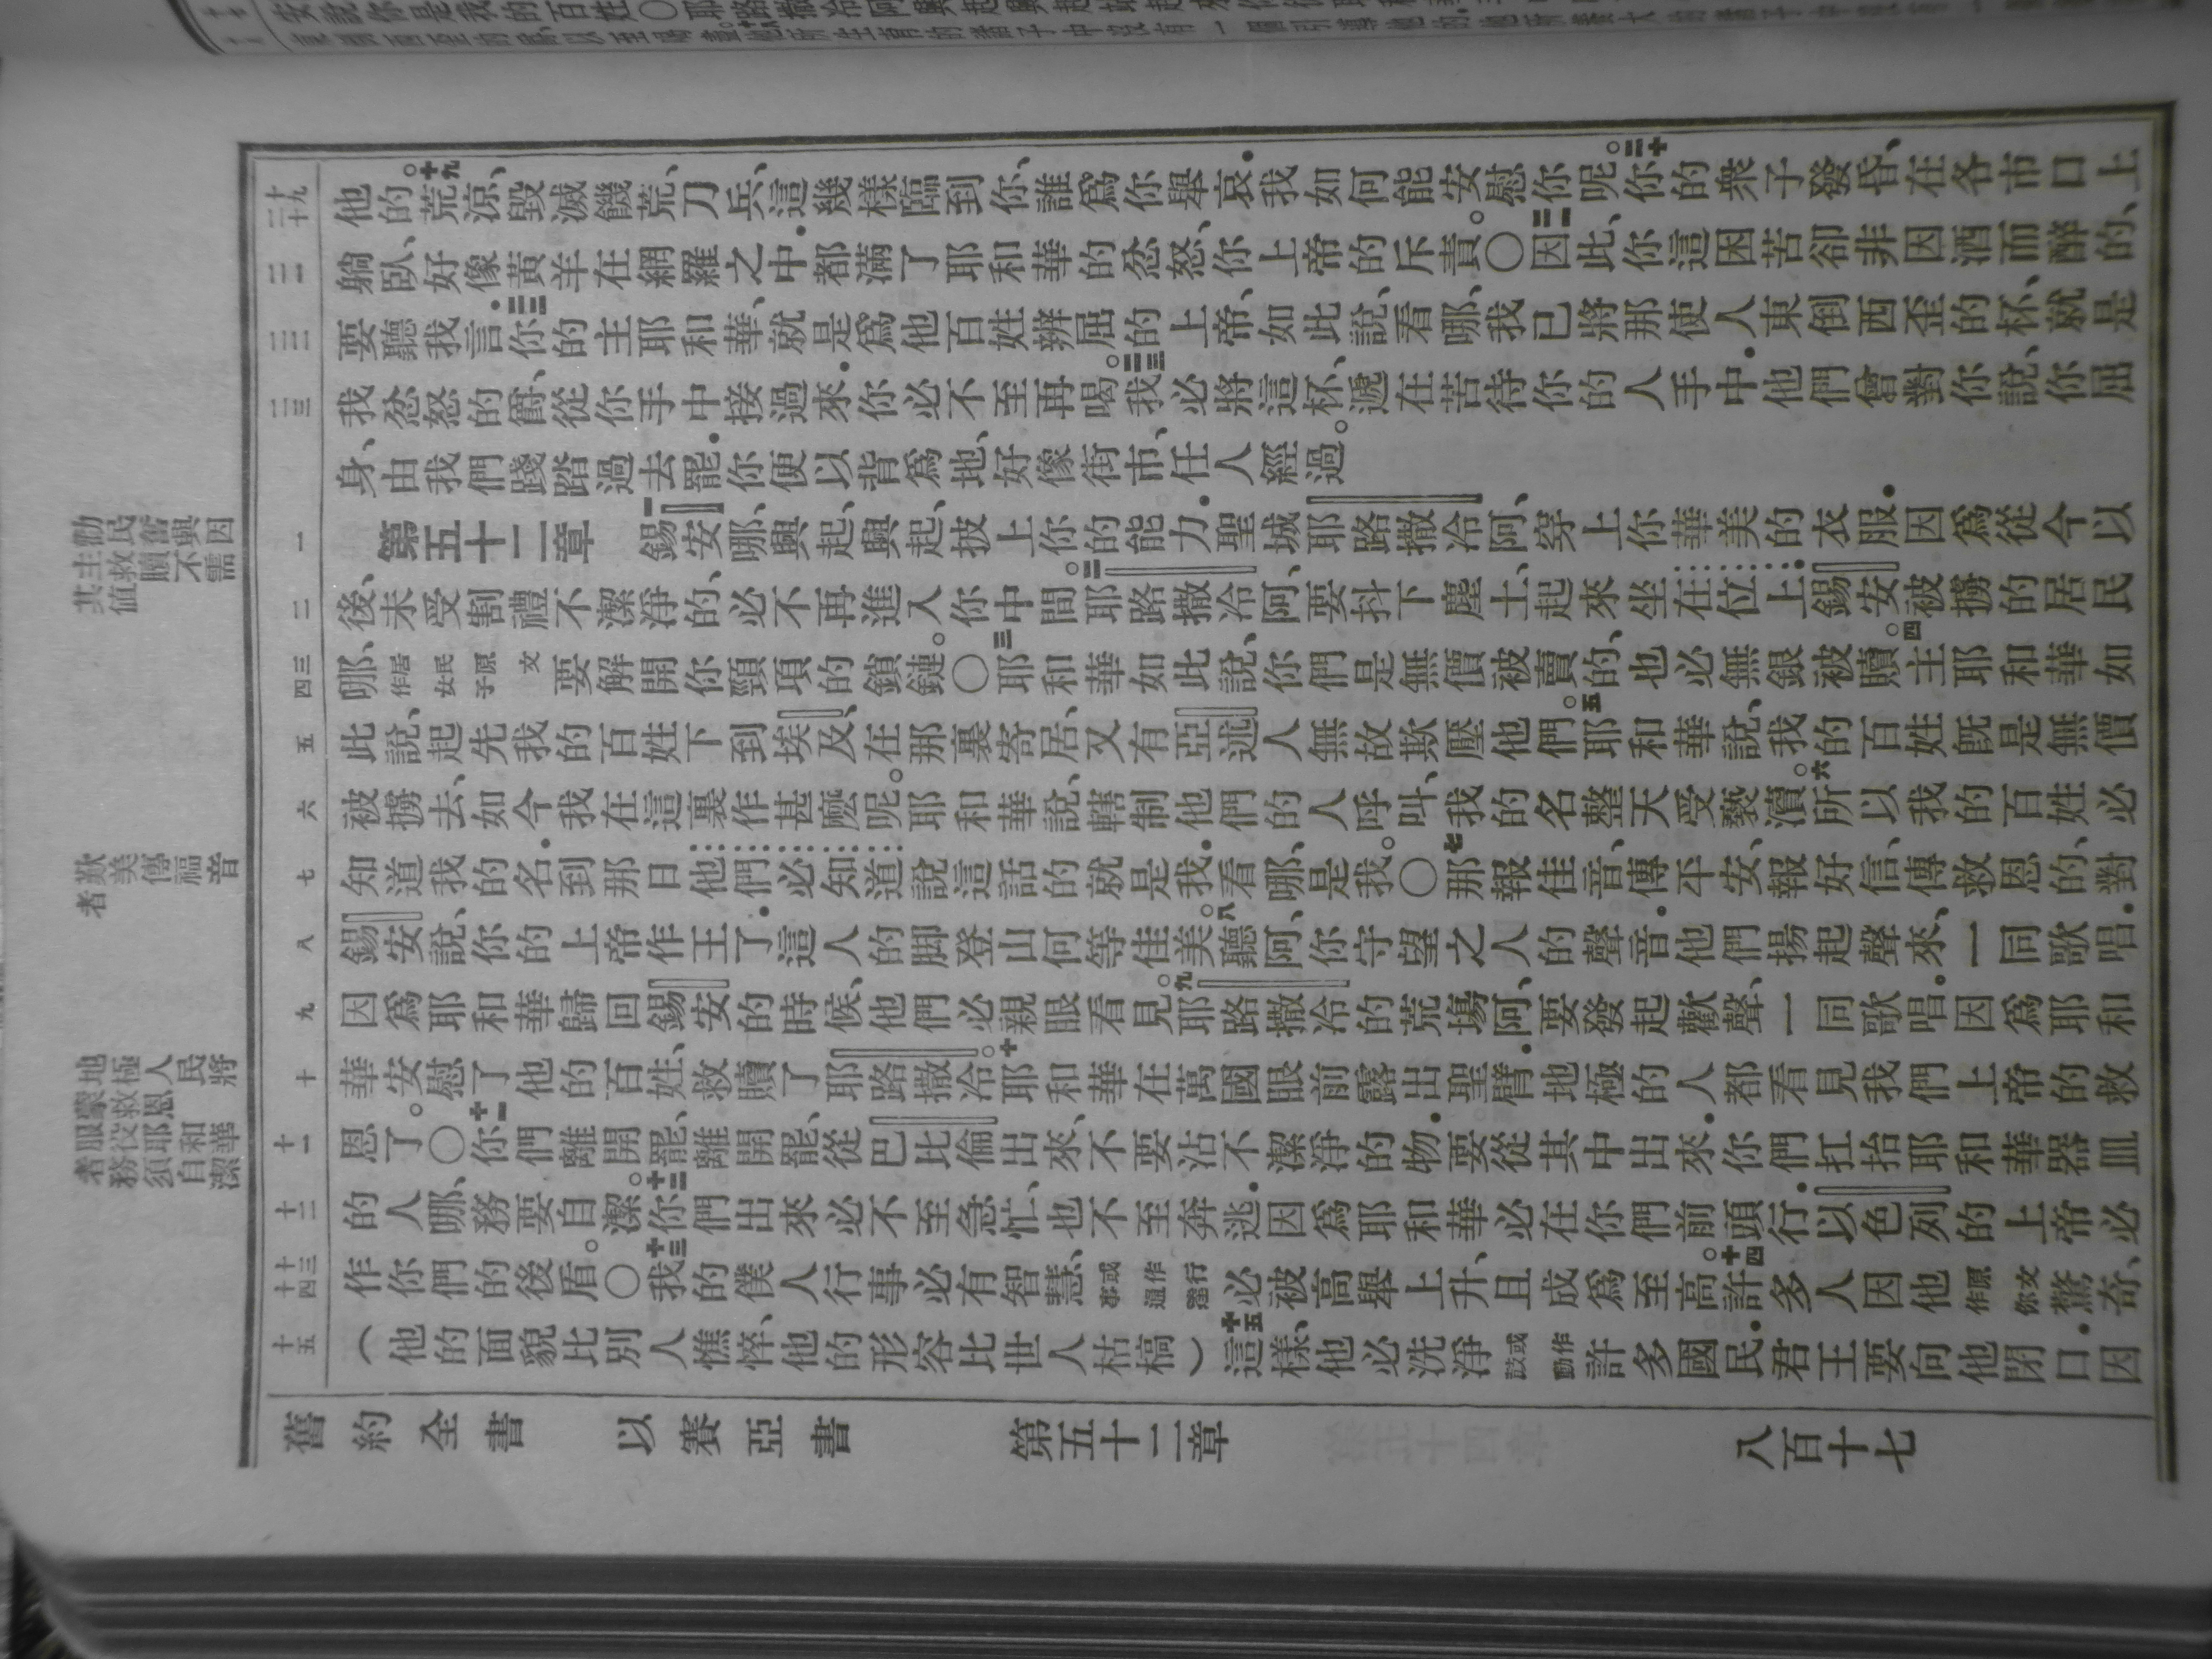 他的。十九荒涼、毀滅、饑荒、刀兵、這幾樣臨到你、誰爲你舉哀．我如何能安慰你呢。二十你的衆子發昏、在各市口上
躺臥、好像黃羊在網羅之中．都滿了耶和華的忿怒、你上帝的斥責。〇二一因此、你這困苦卻非因酒而醉的、
要聽我言．二二你的主耶和華、就是爲他百姓辨屈的上帝、如此說、看哪、我已將那使人東倒西歪的杯、就是
我忿怒的爵、從你手中接過來．你必不至再喝。二三我必將這杯、遞在苦待你的人手中．他們曾對你說、你屈
身、由我們踐踏過去罷．你便以背爲地、好像街市、任人經過。
第五十二章
一錫安哪、興起、興起、披上你的能力．聖城耶路撒冷阿、穿上你華美的衣服．因爲從今以
後、未受割禮不潔淨的、必不再進入你中間。二耶路撒冷阿、要抖下塵土、起來坐在位上．錫安被擄的居民
哪、居民原文作女子要解開你頸項的鎖鏈。〇三耶和華如此說、你們是無價被賣的、也必無銀被贖。四主耶和華如
此說、起先我的百姓下到埃及、在那裏寄居、又有亞述人無故欺壓他們。五耶和華說、我的百姓旣是無價
被擄去、如今我在這裏作甚麼呢。耶和華說、轄制他們的人呼叫、我的名整天受褻瀆。六所以我的百姓必
知道我的名．到那日他們必知道說這話的就是我．看哪、是我。〇七那報佳音、傳平安、報好信、傳救恩的、對
錫安說、你的上帝作王了．這人的脚登山何等佳美。八聽阿、你守望之人的聲音．他們揚起聲來、一同歌唱．
因爲耶和華歸回錫安的時候、他們必親眼看見。九耶路撒冷的荒塲阿、要發起歡聲、一同歌唱．因爲耶和
華安慰了他的百姓、救贖了耶路撒冷。十耶和華在萬國眼前露出聖臂．地極的人都看見我們上帝的救
恩了。〇十一你們離開罷、離開罷、從巴比倫出來、不要沾不潔淨的物．要從其中出來．你們扛抬耶和華器皿
的人哪、務要自潔。十二你們出來必不至急忙、也不至奔逃．因爲耶和華必在你們前頭行．以色列的上帝必
作你們的後盾。〇十三我的僕人行事必有智慧、或作行事通達必被高舉上升、且成爲至高。十四許多人因他原文作你驚奇、
（他的面貌比別人憔悴、他的形容比世人枯槁）十五這樣、他必洗淨或作鼓動許多國民．君王要向他閉口．因
舊約全書　以賽亞書　第五十二章　八百十七
十九
二十
二一
二二
二三
一
二
三
四
五
六
七
八
九
十
十一
十二
十三
十四
十五
歎美傳福音
者
地極人民將
蒙救恩
服役耶和華
者務須自潔